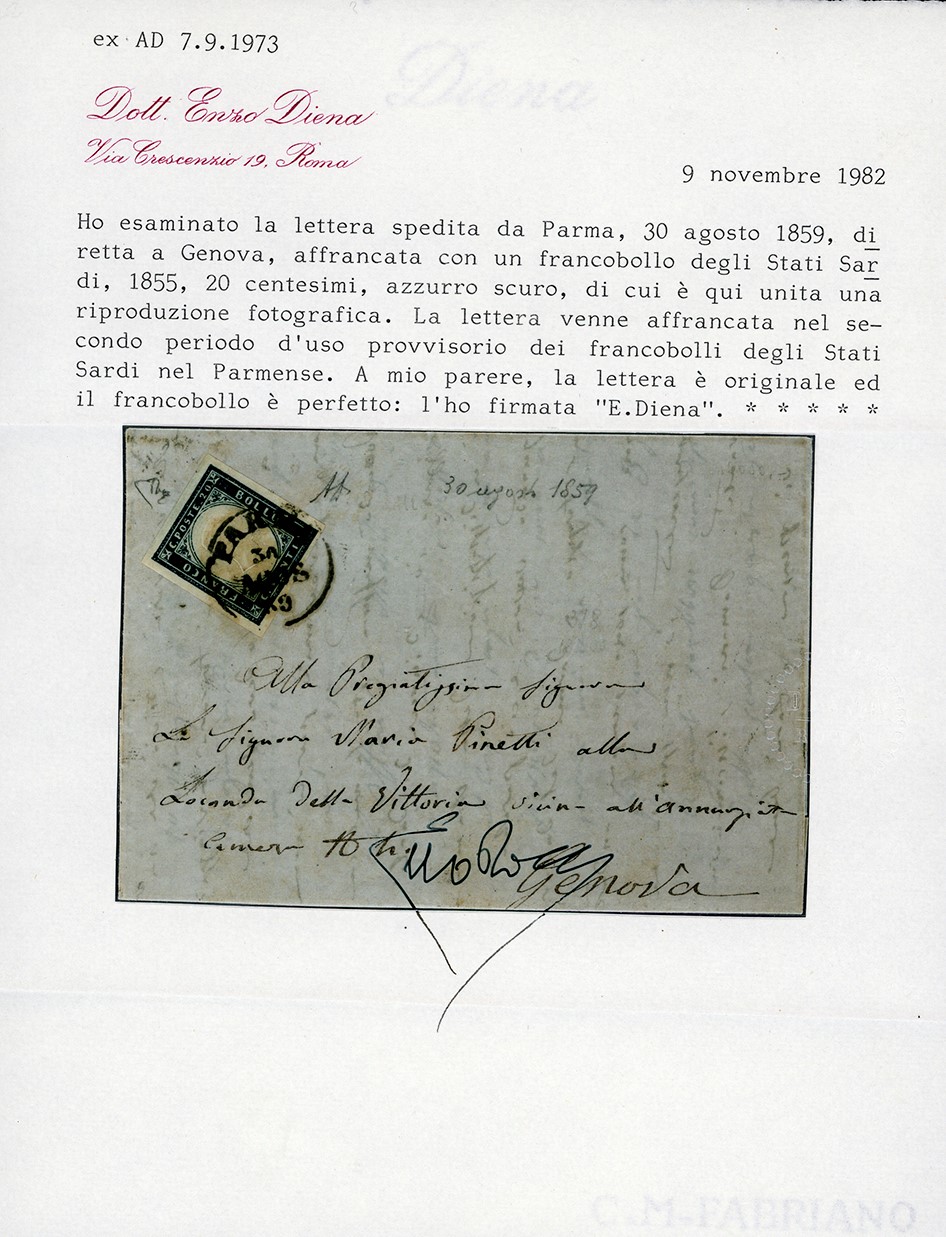 ex AD 7.9.1973
Diena
Dott. Enzo Diena
Via Crescenzio 19, Roma
9 novembre 1982
Ho esaminato la lettera spedita da Parma, 30 agosto 1859, di
retta a Genova, affrancata con un francobollo degli Stati Sar
di, 1855, 20 centesimi, azzurro scuro, di cui è qui unita una
riproduzione fotografica. La lettera venne affrancata nel se-
condo periodo d'uso provvisorio dei francobolli degli Stati
Sardi nel Parmense. A mio parere, la lettera è originale ed
il francobollo è perfetto: l'ho firmata "E.Diena". * * * * *
30 agosto 1859
C. POSTE. 20
BOLLI
FRANCO
PAR
30
Alla Pregiatissima Signora
La Signora Maria Pinetti alla
Locanda della Vittoria vicin all'annunziata
Camera
Genova
C.M-FABRIANO